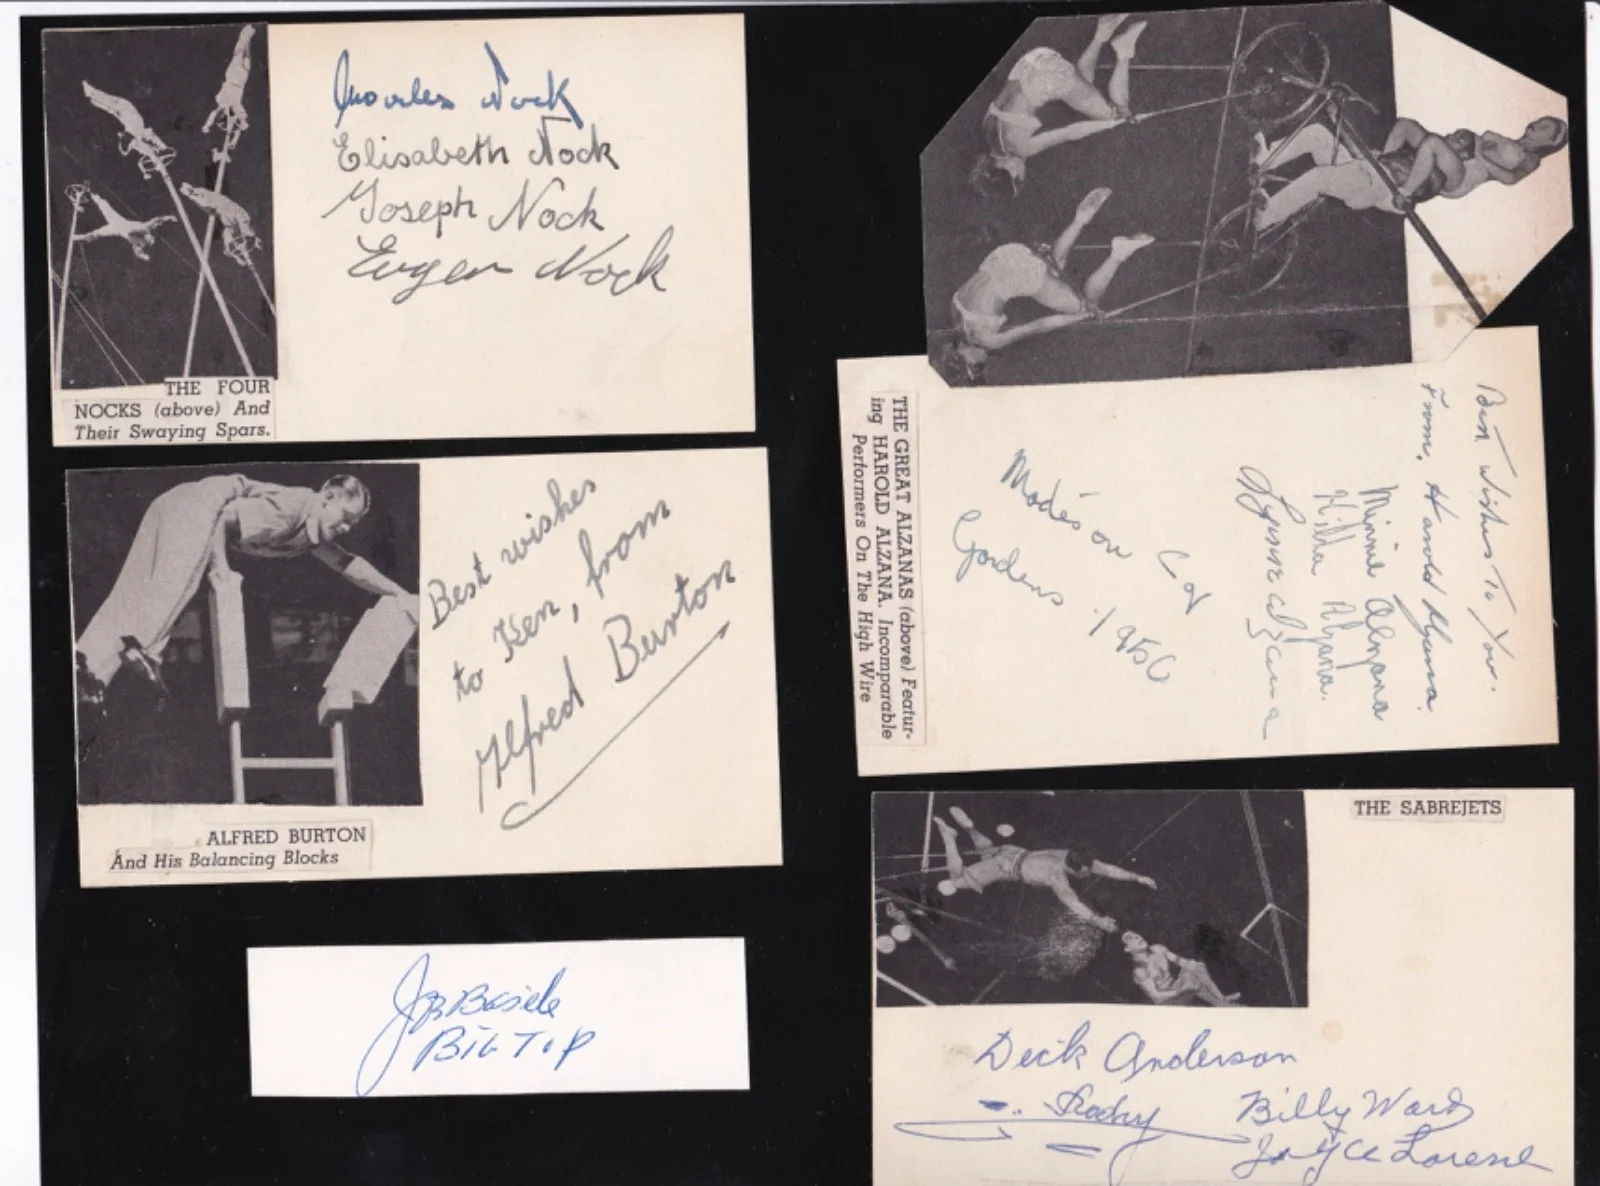 Charles Nock
Elisabeth Nock
Joseph Nock
Eugen Nock
THE FOUR
NOCKS (above) And
Their Swaying Spars.
Best wishes
to Ken, from
Alfred Burton
ALFRED BURTON
And His Balancing Blocks
BIG TOP
THE GREAT ALZANAS (above) Featur-
ing HAROLD ALZANA. Incomparable
Performers On The High Wire
Best Wishes To You.
From. Harold Alzana.
Minnie Alzana
Hilda Alzana.
Alzana
Gardens. 1950
THE SABREJETS
Dick Anderson
Billy Ward
Joyce